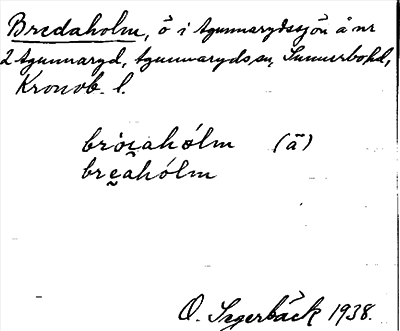 Bredaholm, ö i Agunnarydssjön å nr
2 Agunnaryd, Agunnaryds sn, Sunnerbo hd,
Kronob. l.
(ä)
breahólm
O. Sagerbäck 1938.